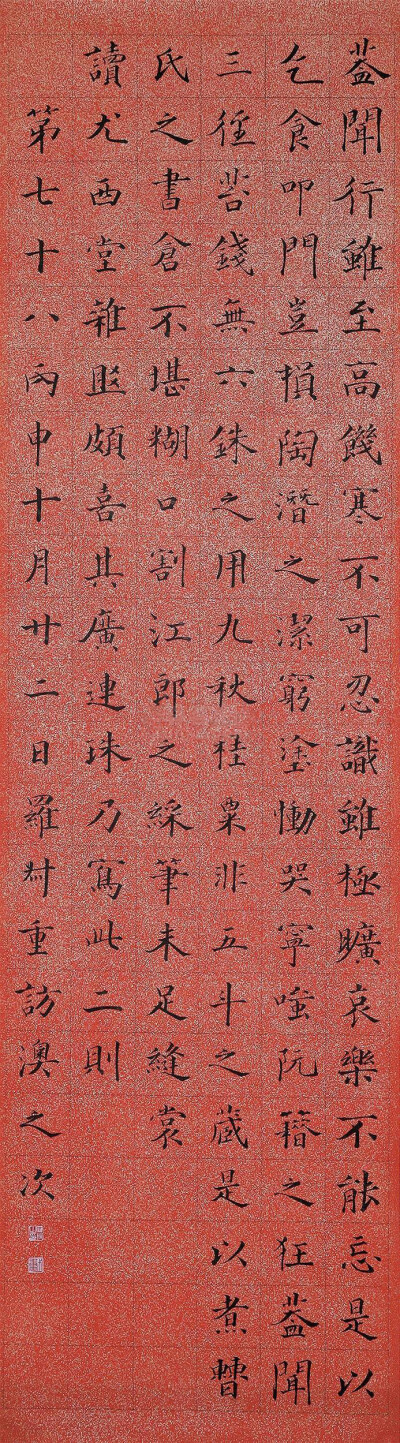 蓋聞行雖至高饑寒不可忍識雖極曠哀樂不能忘是以
乞食叩門豈損陶潛之潔窮塗慟哭寧嗤阮籍之狂蓋聞
三徑苔錢無六銖之用九秋桂粟非五斗之藏是以煮曹
氏之書倉不堪糊口割江郎之綵筆未足縫裳
讀尤西堂雜俎頗喜其廣連珠乃寫此二則
第七十八丙申十月廿二日羅叔重訪澳之次